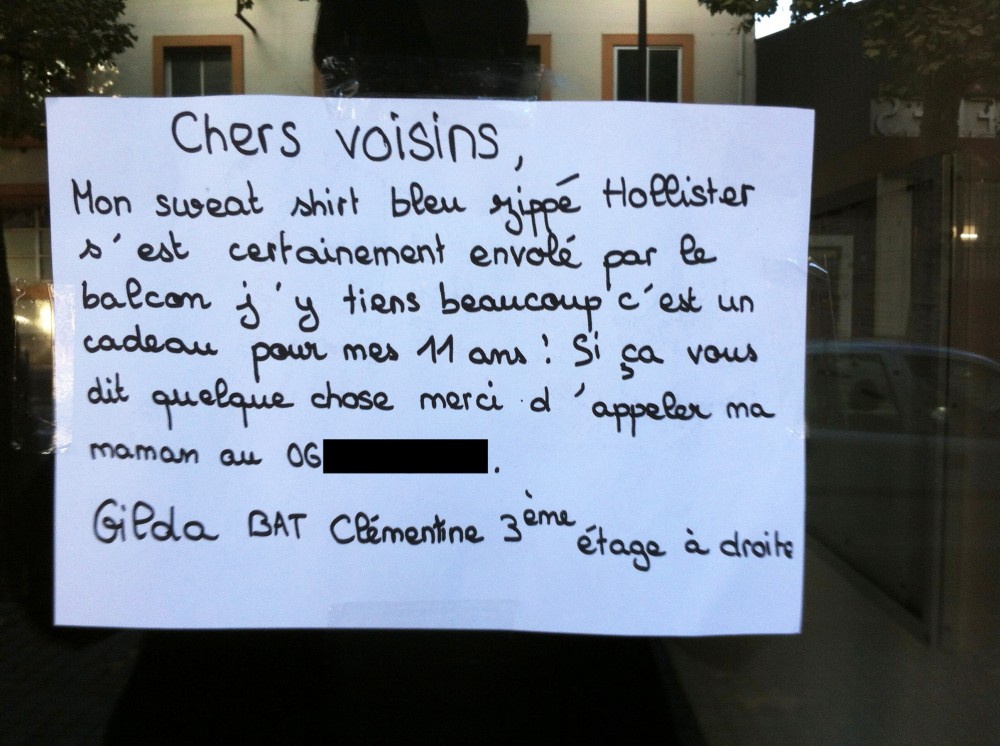 Chers voisins,
Mon sweat shirt bleu zippé Hollister
s'est certainement envolé par le
balcon j'y tiens beaucoup c'est un
cadeau pour mes 11 ans ! Si ça vous
dit quelque chose merci d'appeler ma
maman au 06 .
Gilda BAT Clémentine 3ème étage à droite